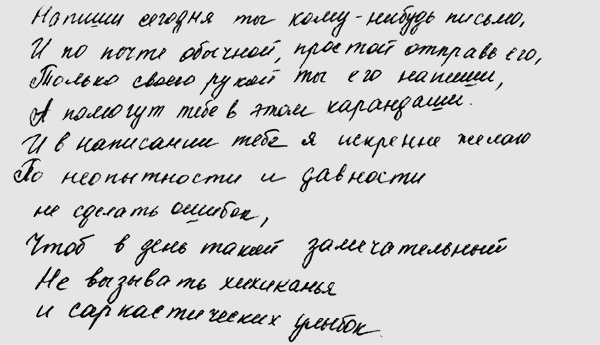 Напиши сегодня ты кому-нибудь письмо,
И по почте обычной, простой отправь его,
Только своею рукой ты его напиши,
А помогут тебе в этом карандаши.
И в написании тебе я искренне желаю
По неопытности и давности
не сделать ошибок,
Чтоб в день такой замечательный
Не вызывать хихиканья
и саркастических улыбок.